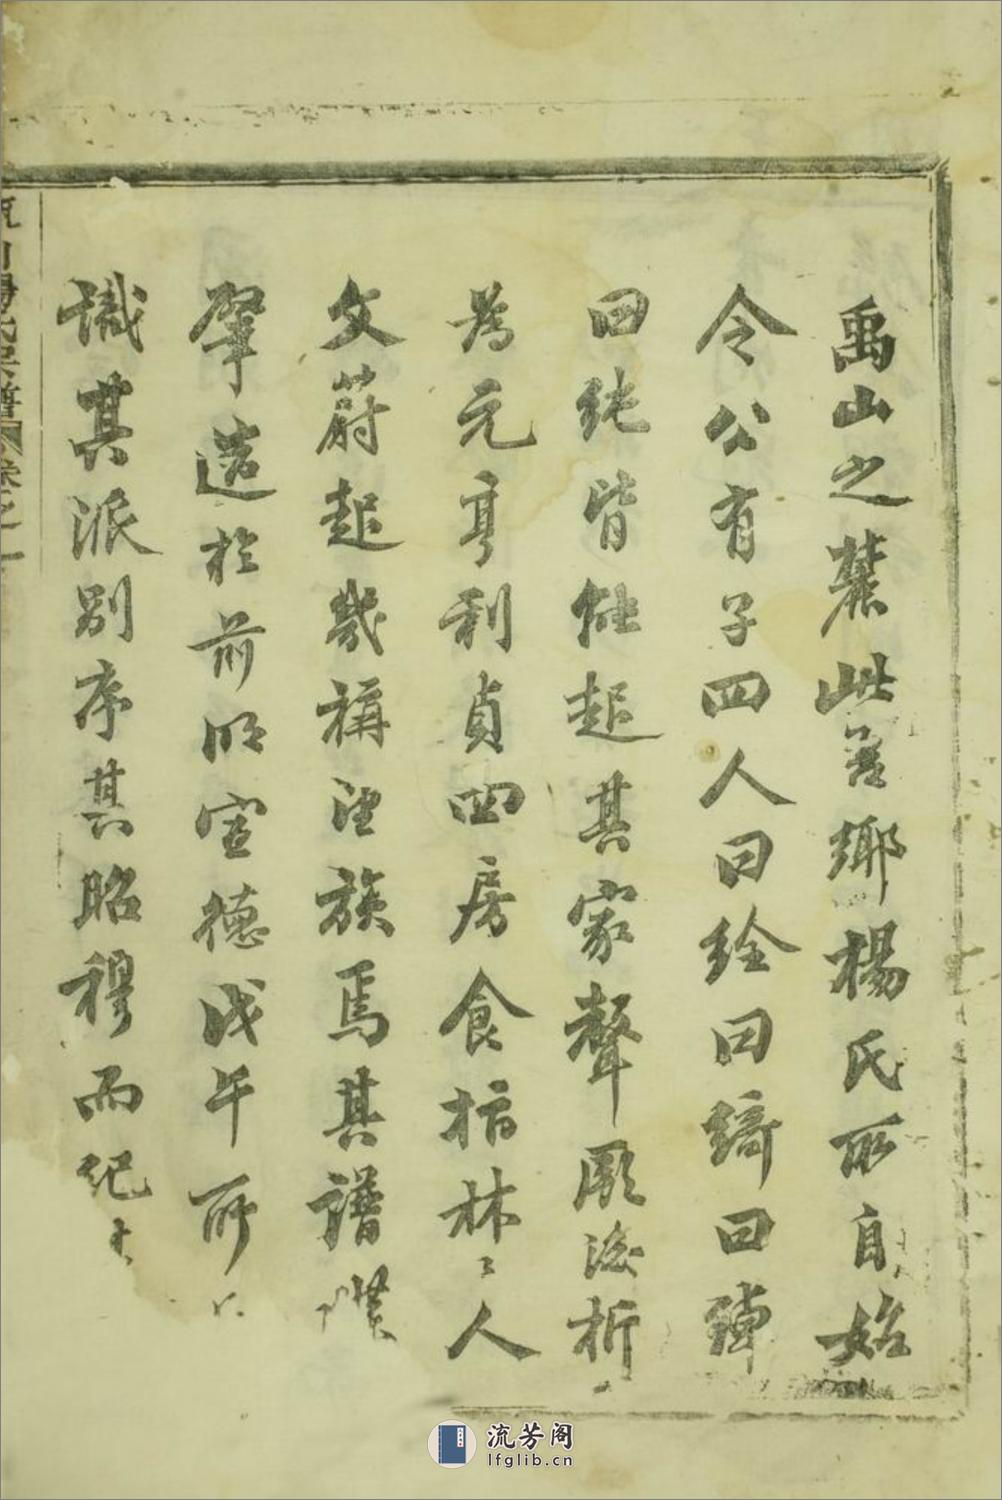 禹山之麓此吾鄉楊氏所自始
令公有子四人曰絟曰綺曰綽
曰純皆能起其家聲厥後析
為元亨利貞四房食指林〻人
文蔚起幾稱望族焉其譜
肇造於前明宣德戊午所
識其派別序其昭穆而紀
氏吳譜 卷之一
流芳阁
lfglib.cn